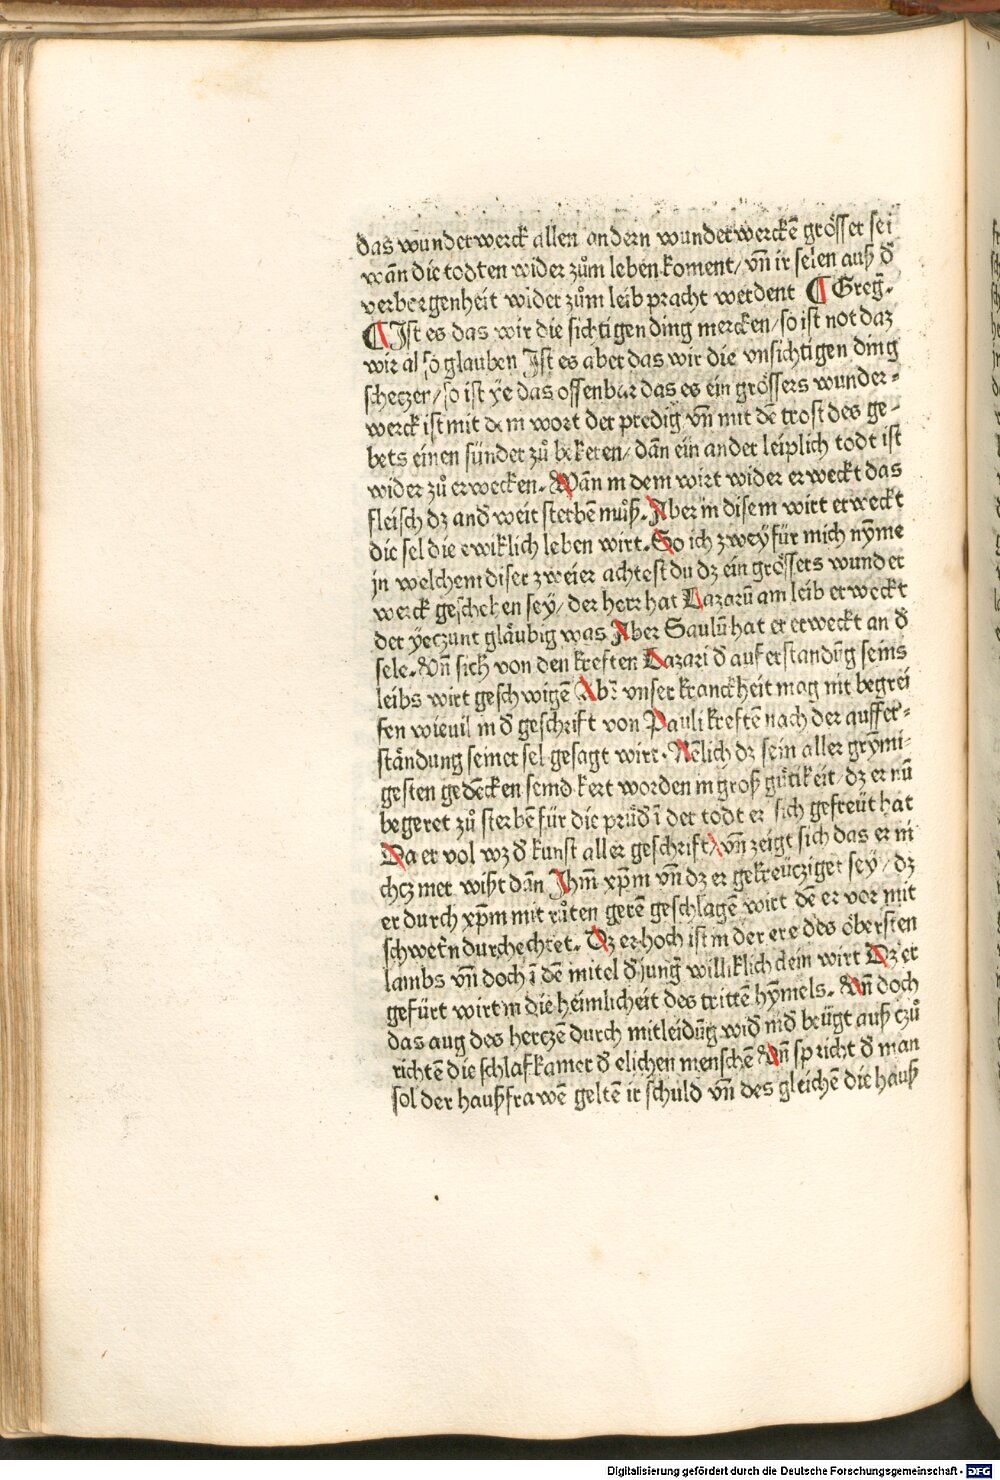 das wunderwerck allen andern wunderwerckē grösser sei
wān die todten wider zům leben koment/ vn̄ ir selen auß d̄
verborgenheit wider zům leib pracht werdent ¶ Greḡ.
¶ Ist es das wir die sichtigen ding mercken/ so ist not daz
wir also glauben Ist es aber das wir die vnsichtigen ding
scheczen/ so ist ye das offenbar das es ein grössers wunder⸗
werck ist mit dem wort der predig vn̄ mit dē trost des ge⸗
bets einen sünder zů bekeren/ dān ein ander leiplich todt ist
wider zů erwecken. Wān in dem wirt wider erweckt das
fleisch dz and̄weit sterbē můß. Aber in disem wirt erweckt
die sel die ewiklich leben wirt. So ich zwey für mich nym̄e
in welchem diser zweier achtest du dz ein grössers wunder
werck geschehen sey/ der herr hat Lazarū am leib erweckt
der yeczunt gläubig was Aber Saulū hat er erweckt an d̄
sele. Vn̄ sich von den kreften Lazari d̄ auferstandūg seins
leibs wirt geschwigē Abr̄ vnser kranckheit mag nit begrei
fen wieuil in d̄ geschrift von Pauli kreftē nach der auffer⸗
ständung seiner sel gesagt wirt. Nēlich dz sein aller grym̄i⸗
gesten gedēcken seind kert worden in groß gütikeit/ dz er nū
begeret zů sterbē für die prüd̄ ī der todt er sich gefreüt hat
Da er vol wz d̄ kunst aller geschrift/ vn̄ zeigt sich das er in
chcz mer wißt dān Ihm̄ xp̄m vn̄ dz er gekreücziget sey/ dz
er durch xp̄m mit růten gerē geschlagē wirt dē er vor mit
schwerī̄n durchechtet. Dz er hoch ist in der ere des öbersten
lambs vn̄ doch ī dē mitel d̄ junḡ williklich clein wirt Dz er
gefürt wirt in die heimlicheit des trittē hym̄els. Vn̄ doch
das aug des herczē durch mitleidūg wid̄ nid̄ beügt auß czů
richtē die schlafkamer d̄ elichen menschē Vn̄ spricht d̄ man
sol der haußfrawē geltē ir schuld vn̄ des gleichē die hauß
Digitalisierung gefördert durch die Deutsche Forschungsgemeinschaft - DFG